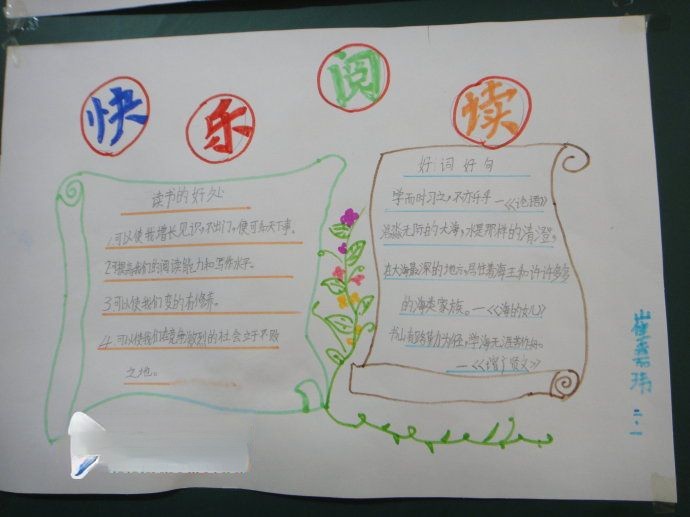 快乐阅读
读书的好处
1.可以使我增长见识,不出门,便可知天下事。
2.可提高我们的阅读能力和写作水平。
3.可以使我们变的有修养。
4.可以使我们在竞争激烈的社会立于不败
之地。
好词好句
学而时习之,不亦乐乎—《论语》
浩淼无际的大海,水是那样的清澄,
在大海最深的地方,居住着海王和许许多多
的海类家族。—《海的女儿》
书山有路勤为径,学海无涯苦作舟。
—《增广贤文》
崔嘉玮
二.一